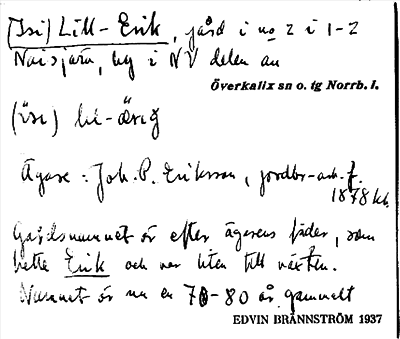 [Isi] Lill-Erik, gård i no 2 i 1-2
Naisjärv, by i NV delen av
Överkalix sn o. tg Norrb. l.
(isi) lil-
Ägare: Joh. P. Eriksson, jordbr-arb. f.
1878 
Gårdsnamnet är efter ägarens fader, som
hette Erik och var liten till växten.
Namnet är nu en 70-80 år gammalt
EDVIN BRÄNNSTRÖM 1937